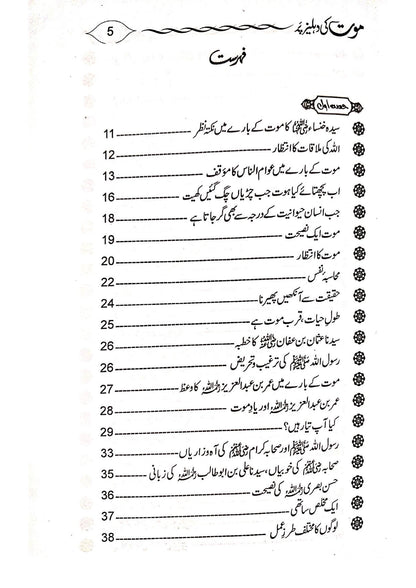 موت کی دہلیز پر 5
فہرست
حصہ اول
سیدہ خنساء رضی اللہ عنہا کا موت کے بارے میں نکتۂ نظر 11
اللہ کی ملاقات کا انتظار 12
موت کے بارے میں عوام الناس کا مؤقف 13
اب پچھتائے کیا ہوت جب چڑیاں چگ گئیں کھیت 16
جب انسان حیوانیت کے درجہ سے بھی گر جاتا ہے 18
موت ایک نصیحت 19
موت کا انتظار 20
محاسبۂ نفس 22
حقیقت سے آنکھیں پھیرنا 24
طولِ حیات، قربِ موت ہے 25
سیدنا عثمان بن عفان رضی اللہ عنہ کا خطبہ 26
رسول اللہ ﷺ کی ترغیب و تحریض 26
موت کے بارے میں عمر بن عبدالعزیز رحمہ اللہ کا وعظ 27
عمر بن عبدالعزیز رحمہ اللہ اور یادِ موت 28
کیا آپ تیار ہیں؟ 29
رسول اللہ ﷺ اور صحابہ کرام رضی اللہ عنہم کی آہ و زاریاں 33
صحابہ رضی اللہ عنہم کی خوبیاں، سیدنا علی بن ابو طالب رضی اللہ عنہ کی زبانی 35
حسن بصری رحمہ اللہ کی نصیحت 36
ایک مخلص ساتھی 37
لوگوں کا مختلف طرزِ عمل 38